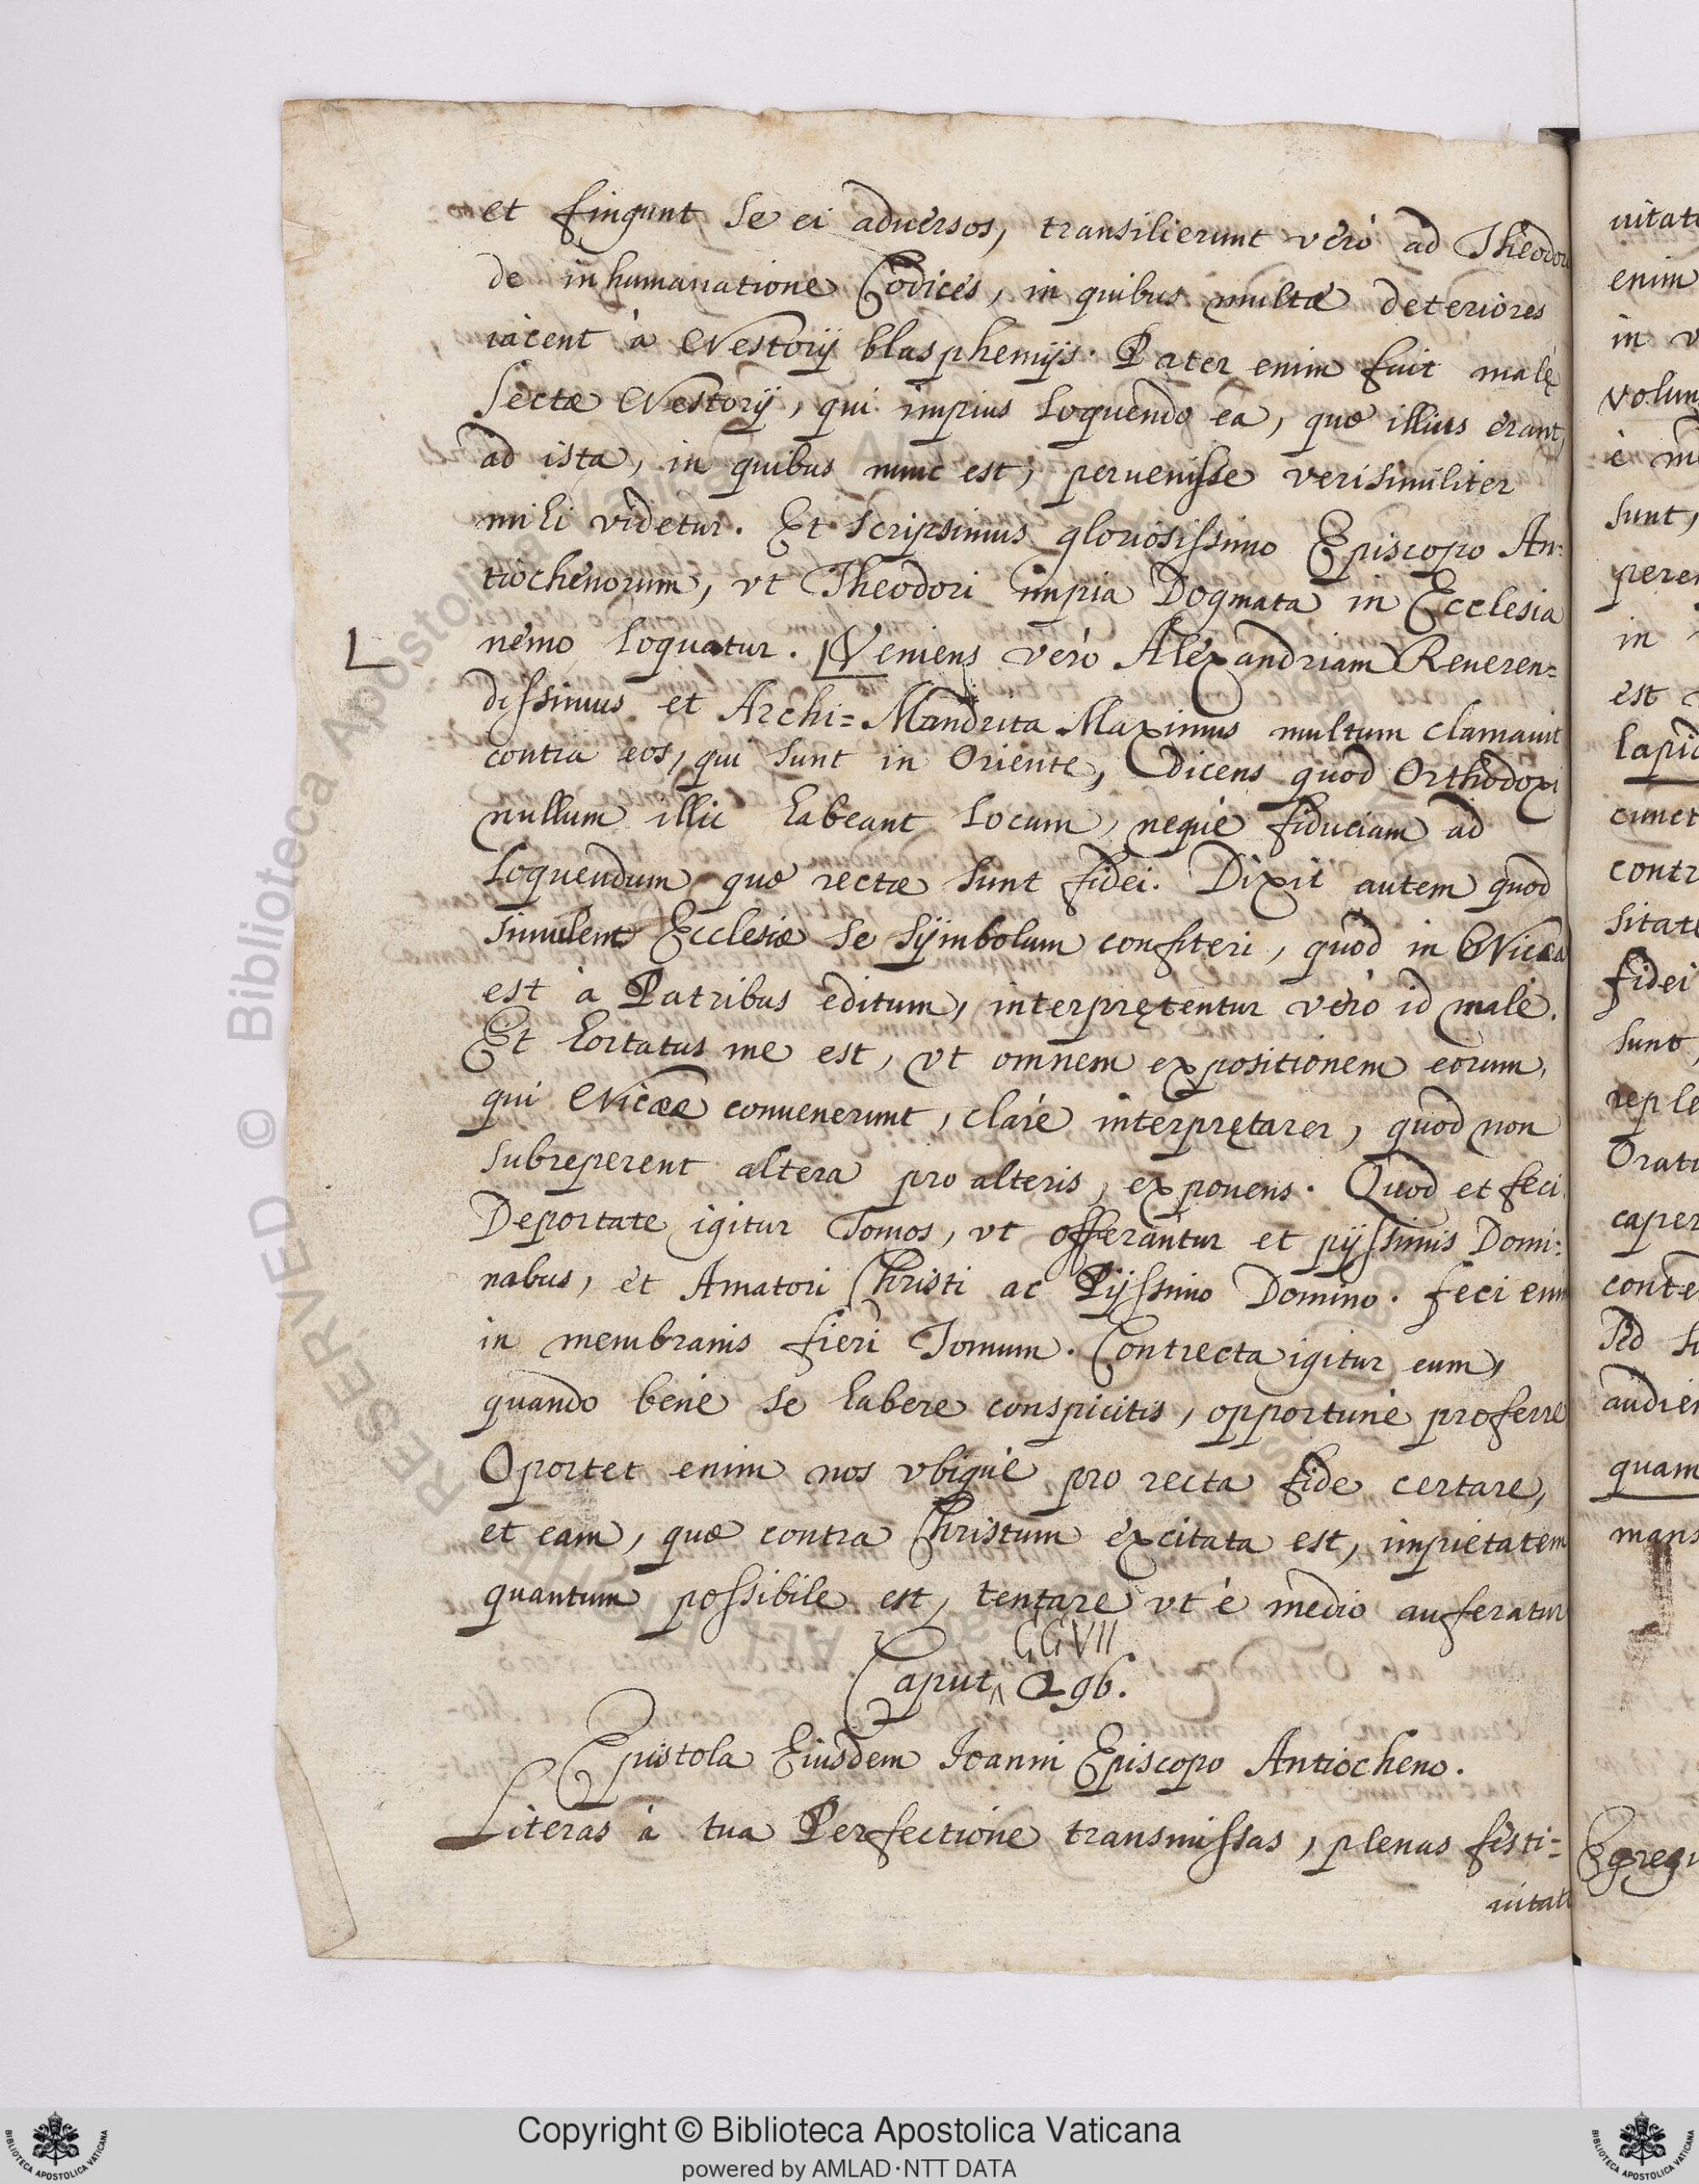 et fingunt se ei aduersos, transilierunt verò ad Theodori
de inhumanatione Codices, in quibus multæ deteriores
iacent à Nestorij blasphemijs. Pater enim fuit malę
sectæ Nestorij, qui impius loquendo ea, quæ illius erant,
ad ista, in quibus nunc est, peruenisse verisimiliter
mihi videtur. Et scripsimus gloriosissimo Episcopo An-
tiochenorum, vt Theodori impia Dogmata in Ecclesia
L nemo loquatur. Veniens verò Alexandriam Reueren=
dissimus et Archi=Mandrita Maximus multum clamauit
contra eos, qui sunt in Oriente, dicens quod Orthodoxi
nullum illic habeant locum, neque fiduciam ad
loquendum quæ rectæ sunt fidei. Dixit autem quod
simulent Ecclesiæ se sÿmbolum confiteri, quòd in Nicæa
est à Patribus editum, interpretentur verò id malè.
Et hortatus me est, vt omnem expositionem eorum,
qui Nicææ conuenerunt, clarè interpretarer, quod non
subreperent altera pro alteris, exponens. Quod et feci.
Deportate igitur Tomos, vt offerantur et pijssimis Domi-
nabus, et Amatori Christi ac Pijssimo Domino. feci enim
in membranis fieri Tomum. Contrecta igitur eum,
quando benè se habere conspicitis, opportunè proferre
Oportet enim nos vbique pro recta fide certare,
et eam, quæ contra Christum excitata est, impietatem
quantum possibile est, tentare vt è medio auferatur
CCVII
Caput 296.
Epistola Eiusdem Ioanni Episcopo Antiocheno.
Literas à tua Perfectione transmissas, plenas festi=
uitate
uitate
enim
in v
volun
è me
sunt,
perer
in
est
lapid
cunct
contr
sitate
fidei
sunt,
reple
Orati
caper
conte
Ad su
audien
quam
mans
Egregi
© Biblioteca Apostolica Vaticana
ALL RIGHTS RESERVED
Copyright © Biblioteca Apostolica Vaticana
powered by AMLAD·NTT DATA
BIBLIOTECA APOSTOLICA VATICANA
BIBLIOTECA APOSTOLICA VATICANA